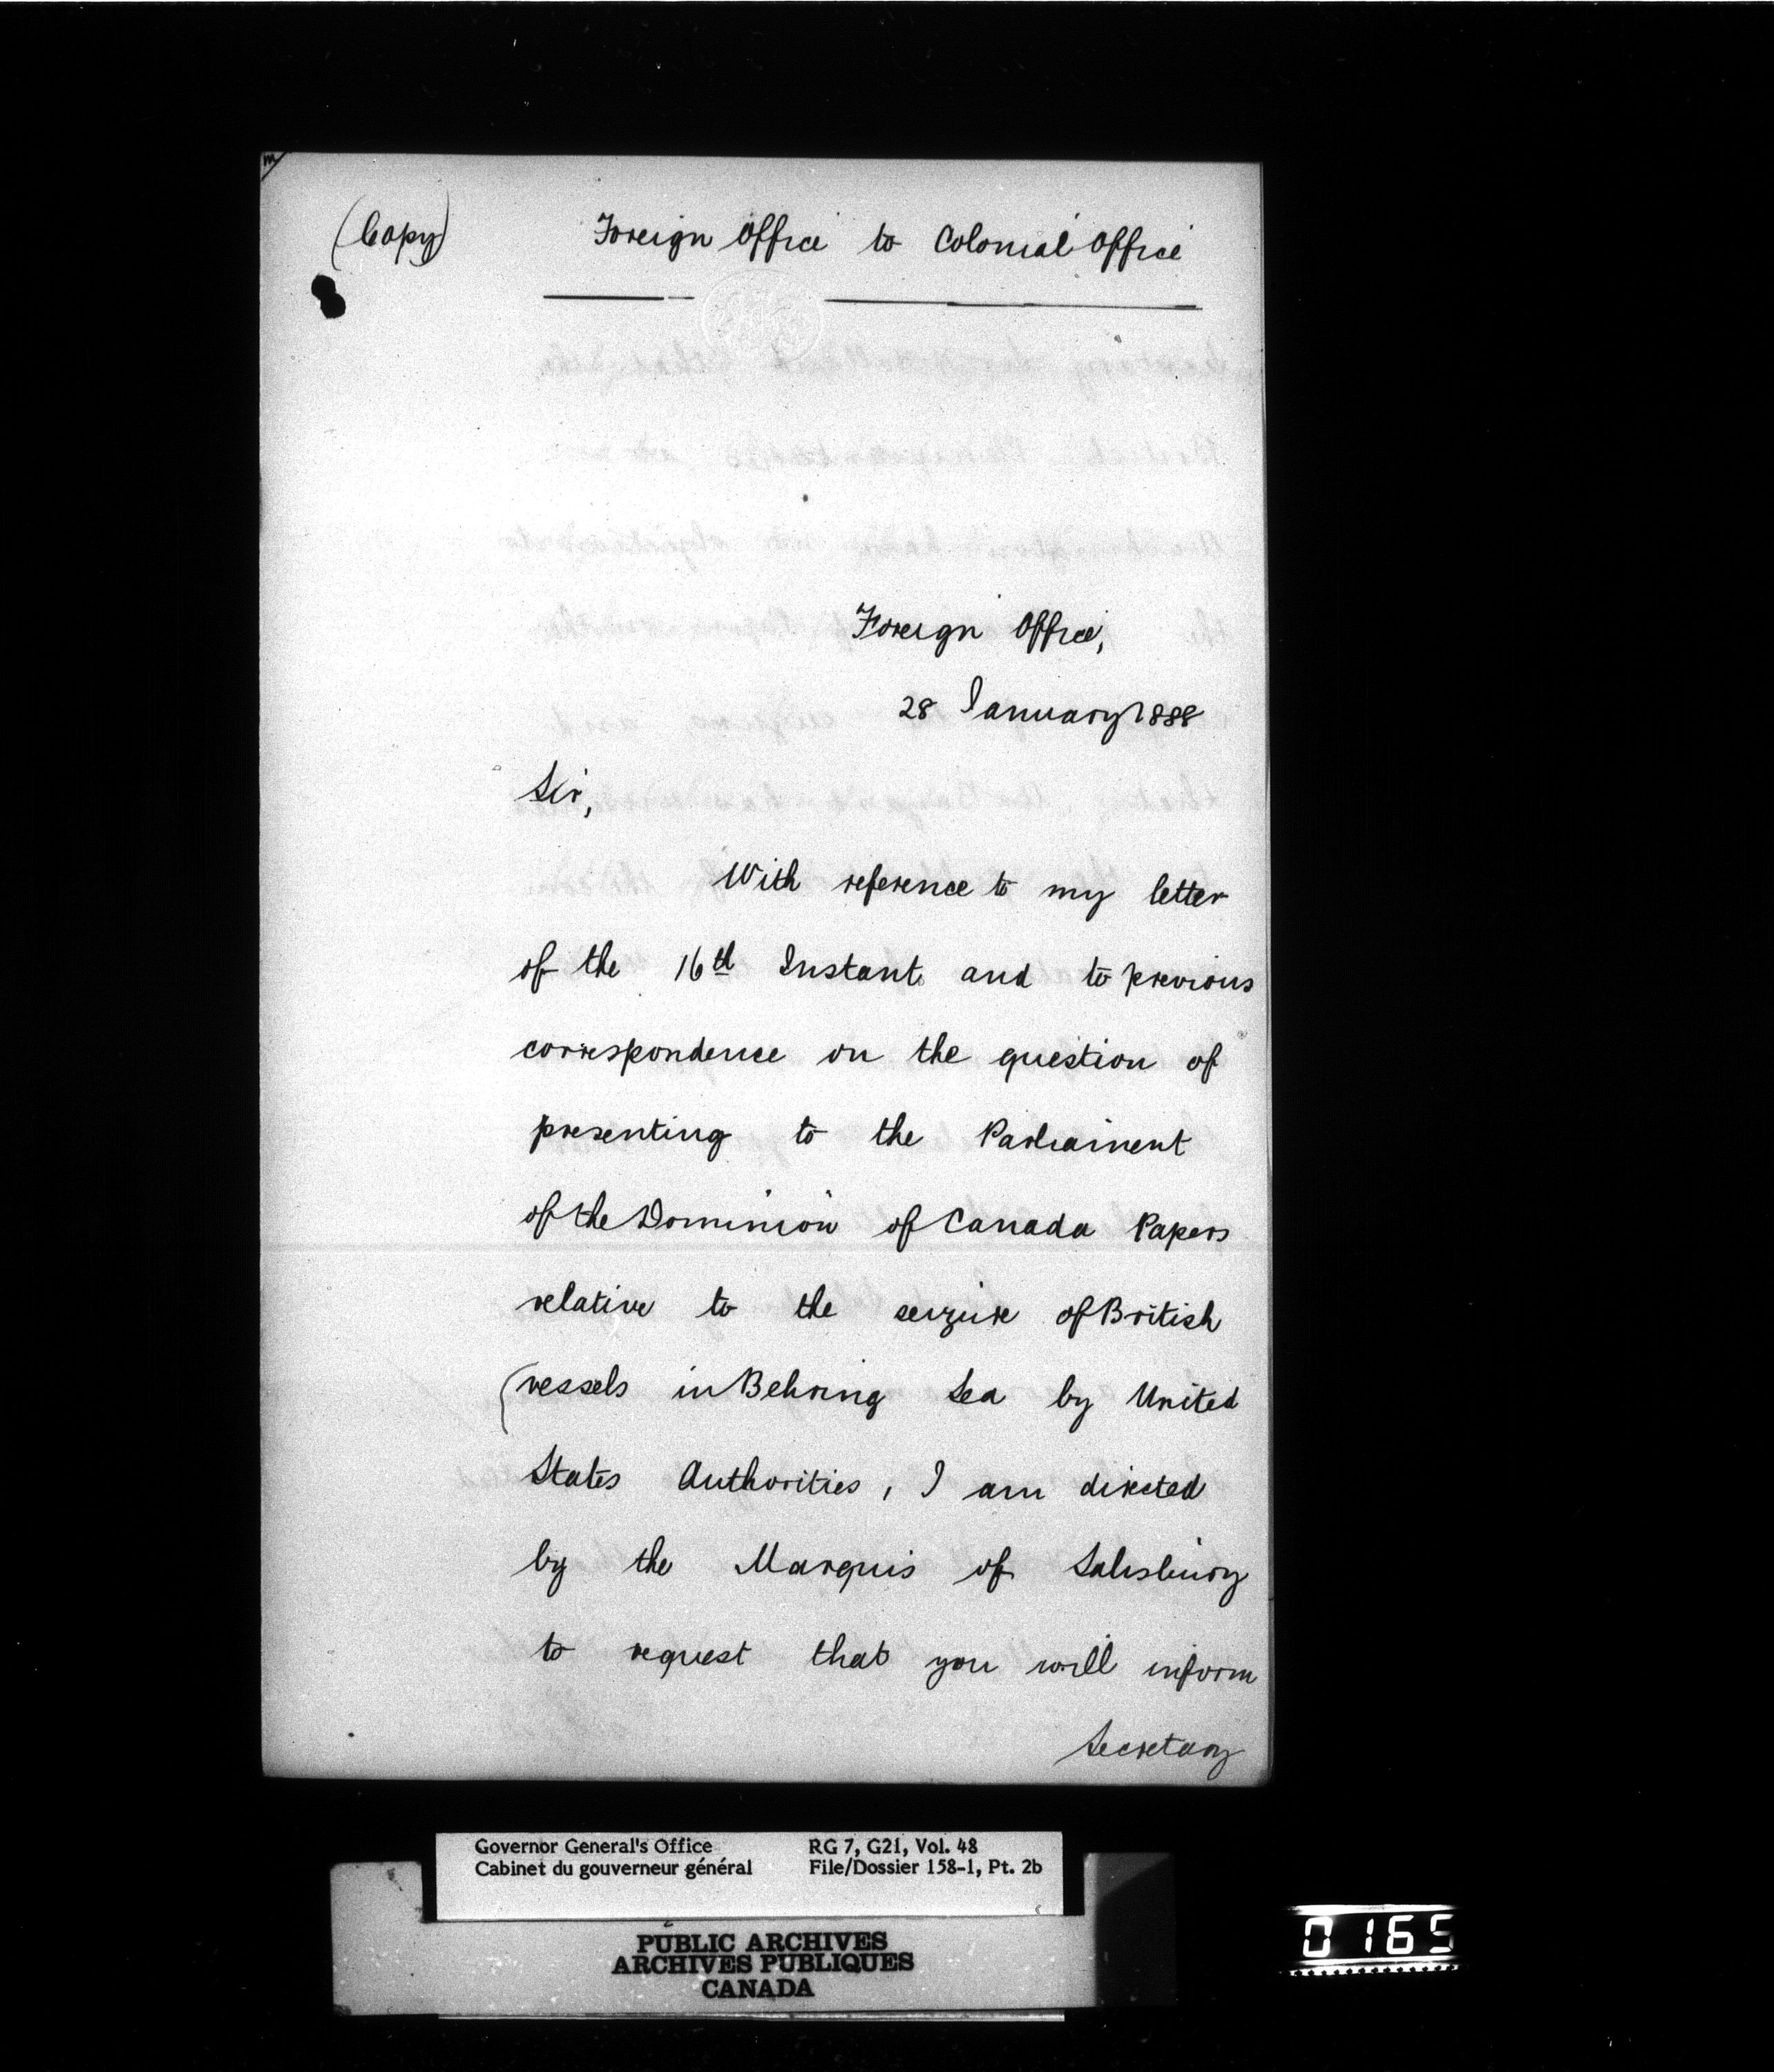 (Copy)
Foreign Office to Colonial Office
Foreign Office,
28 January 1888
Sir,
With reference to my letter
of the 16th Instant and to previous
correspondence on the question of
presenting to the Parliament
of the Dominion of Canada Papers
relative to the seizure of British
vessels in Behring Sea by United
States Authorities, I am directed
by the Marquis of Salisbury
to request that you will inform
Secretary
Governor General's Office
Cabinet du gouverneur général
RG 7, G21, Vol. 48
File/Dossier 158-1, Pt. 2b
PUBLIC ARCHIVES
ARCHIVES PUBLIQUES
CANADA
0165